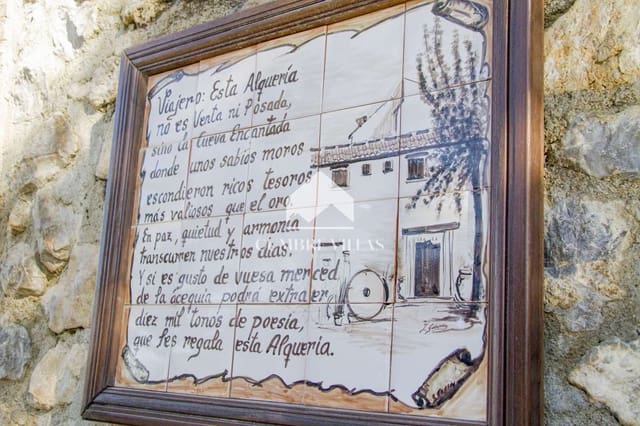 Viajero: Esta Alquería
y no es Venta ni Posada,
sino la Cueva Encantada
donde unos sabios moros
escondieron ricos tesoros
más valiosos que el oro.
En paz, quietud y armonía
transcurren nuestros días.
Y si es gusto de vuesa merced
de la aceguia podrá extraer
diez mil tonos de poesía,
que les regala esta Alquería.
CUMBRE VILLAS